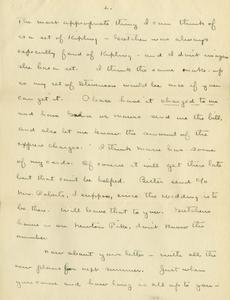 2.
The most appropriate thing I can think of
is a set of Kipling — Gretchen was always
especially fond of Kipling — and I don't imagine
she has a set. I think the same make-up
as my set of Stevenson would be nice if you
can get it. Please have it charged to me
and have them send me the bill,
and also let me know the amount of the
express charges. I think Marie has some
of my cards. Of course it will get there late
but that can't be helped. Better send it to
Mrs. Roberts, I suppose, since the wedding is to
be there. Will leave that to you. Gretchen's
home is on Newton Pike, don't know the
number.
Now about your letter — with all the
new plans for next summer. Just when
you come and how long is all up to you —